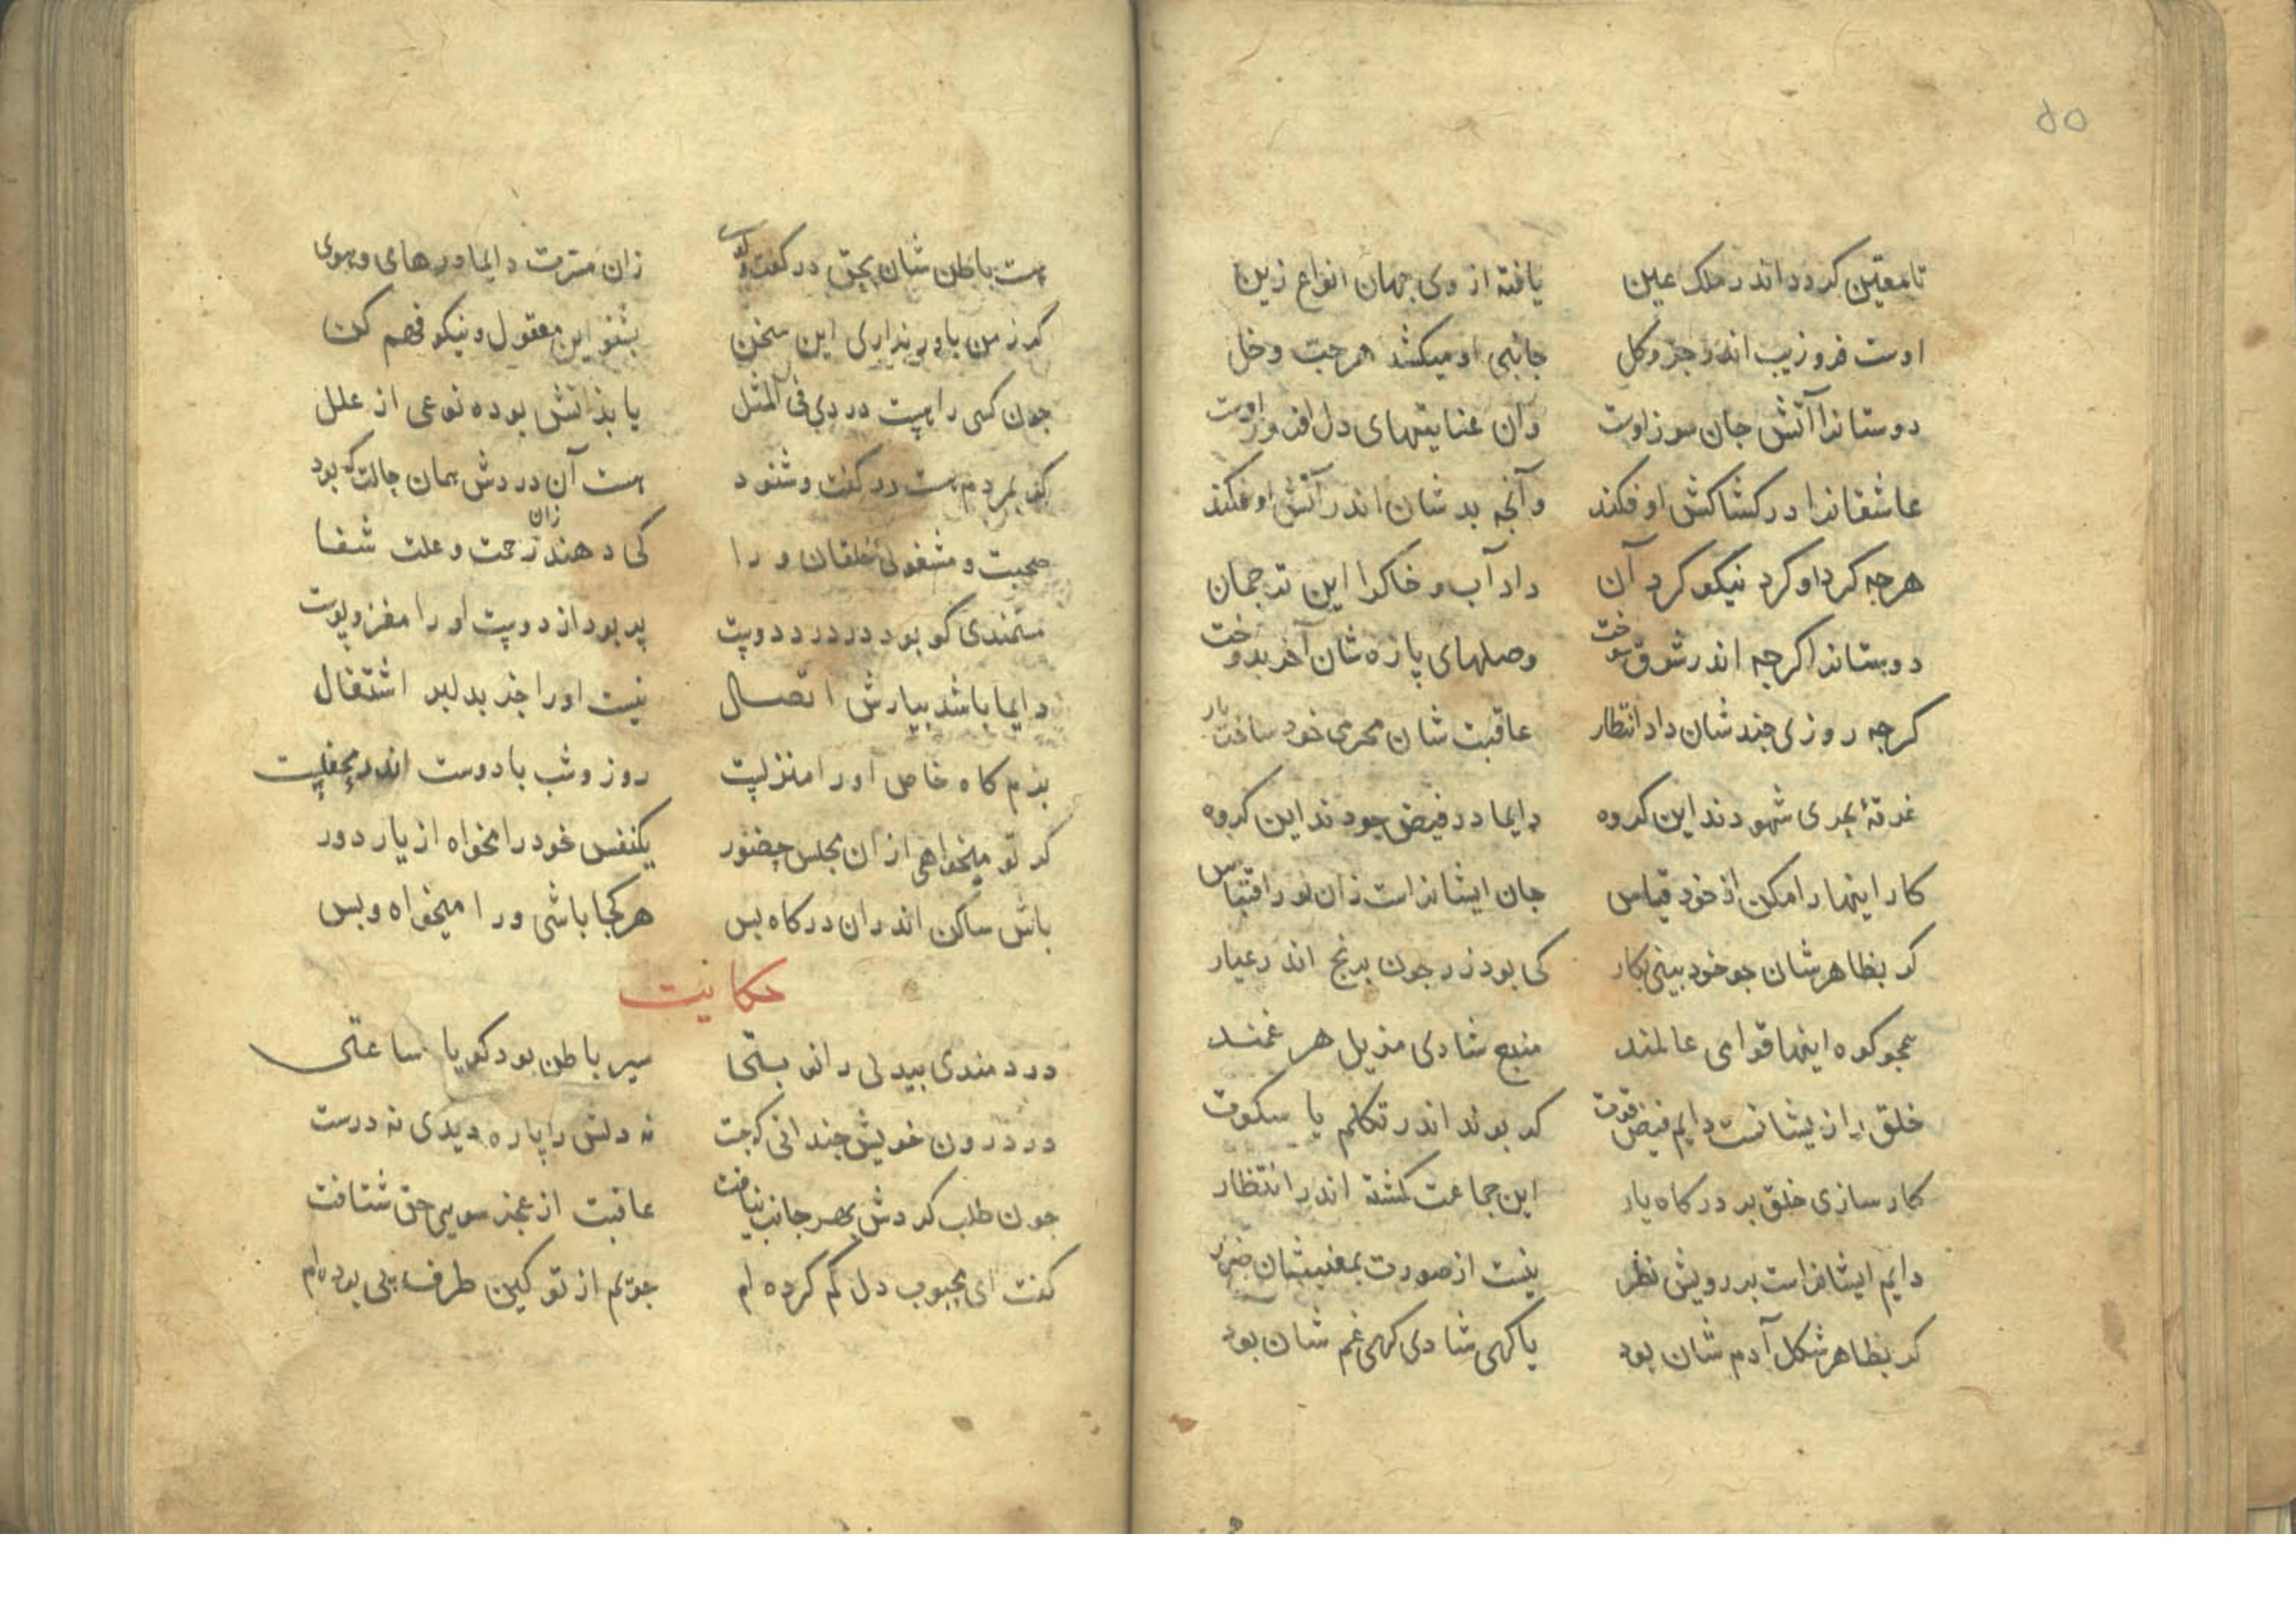 ۵۵
تا معین کردد اندر ملک عین یافته از وی جهان انواع زین
اوست فر و زیب اندر جز و کل جانبی او میکشد هر حب و خل
دوستانرا آتش جان سوز اوست وان عنایتهای دل افروز اوست
عاشقانرا در کشاکش او فکند وآنچه بدشان اندر آتش او فکند
هرچه کرد او کرد نیکو کرد آن داد آب و خاکرا این ترجمان
دوستانرا کرچه اندر شوق سوخت وصلهای پاره شان آخر بدوخت
کرچه روزی چند شان داد انتظار عاقبت شان محرمی خود ساخت یار
غرقهٔ بحری شهودند این کروه دایما در فیض جودند این کروه
کار اینها را مکن از خود قیاس جان ایشانراست زان نور اقتباس
کر بظاهرشان چو خود بینی بکار کی بود زر چون برنج اندر عیار
همچو کوه اینها قوامی عالمند منبع شادی مزیل هر غمند
خلق را زیشانست دایم فیض قوت کر بوند اندر تکلم یا سکوت
کار سازی خلق بر درکاه یار این جماعت کشته اندر انتظار
دایم ایشانراست بر رویش نظر نیست از صورت بمعنیشان ضرر
کر بظاهر شکل آدم شان بود یا کهی شادی کهی غم شان بود
هست باطن شان بحق در کفت و کوی زان مسرت دایما در های و هوی
کر ز من باور نداری این سخن بشنو این معقول و نیکو فهم کن
چون کسی را هست دردی فی المثل یا بذاتش بوده نوعی از علل
کر بمردم هست در کفت و شنود هست آن دردش همان حالت که بود
صحبت و مشغولی خلقان ورا کی دهند زان زحمت و علت شفا
مستمندی کو بود در درد دوست پر بود از دوست او را مغز و پوست
دایما باشد بیارش اتصال نیست او را جز بدلبر اشتغال
بزم کاه خاص او را منزلیست روز و شب با دوست اندر محفلیست
کر تو میخواهی ازان مجلس حضور یکنفس خود را مخواه از یار دور
باش ساکن اندران درکاه بس هر کجا باشی ورا میخواه و بس
حکایت
دردمندی بیدلی را نوبتی سیر باطن بود کویا ساعتی
در درون خویش چندانی که جست نه دلش را پاره دیدی نه درست
چون طلب کردش بهر جانب نیافت عاقبت از عجز سویی حق شتافت
کفت ای محبوب دل کم کرده ام چونم از تو کین طرف پی بوده ام